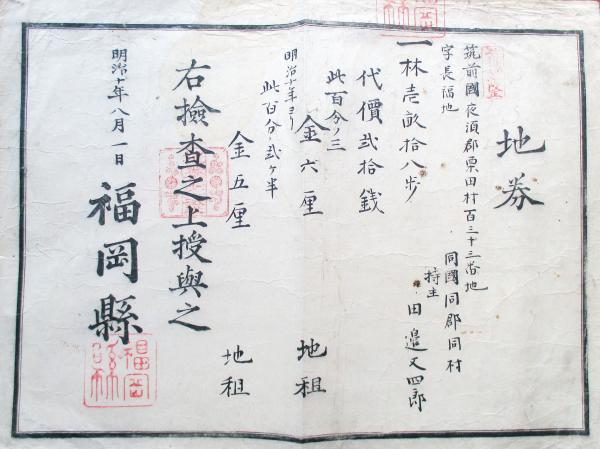 地券
筑前國夜須郡栗田村百三十三番地
字長福地
同國同郡同村
持主 田邉又四郎
一林壱畝拾八歩
代價貳拾銭
此百分ノ三
金六厘 地租
明治十年ヨリ
此百分ノ貳ヶ半
金五厘 地租
右撿查之上授與之
明治十年八月一日
福岡縣